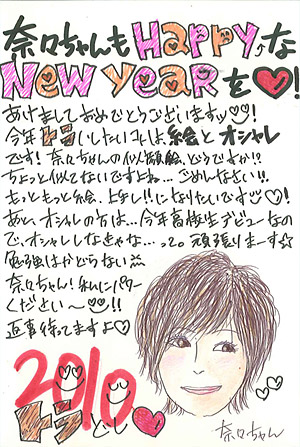 奈々ちゃんも Happy♪な
New year を♥!
あけましておめでとうございますッ♡!
今年トライしたいコトは、絵とオシャレ
です!奈々ちゃんの似顔絵、どうですか!?
ちょっと似てないですよね…ごめんなさい!!
もっともっと絵、上手し!!になりたいです♡!
あと、オシャレの方は…今年高校生デビューなの
で、オシャレしなきゃな…って。頑張りまーす☆
勉強はかどらない
奈々ちゃん!私にパワー
ください〜!!
返事待ってますよ♡
2010
トラどし♥
奈々ちゃん